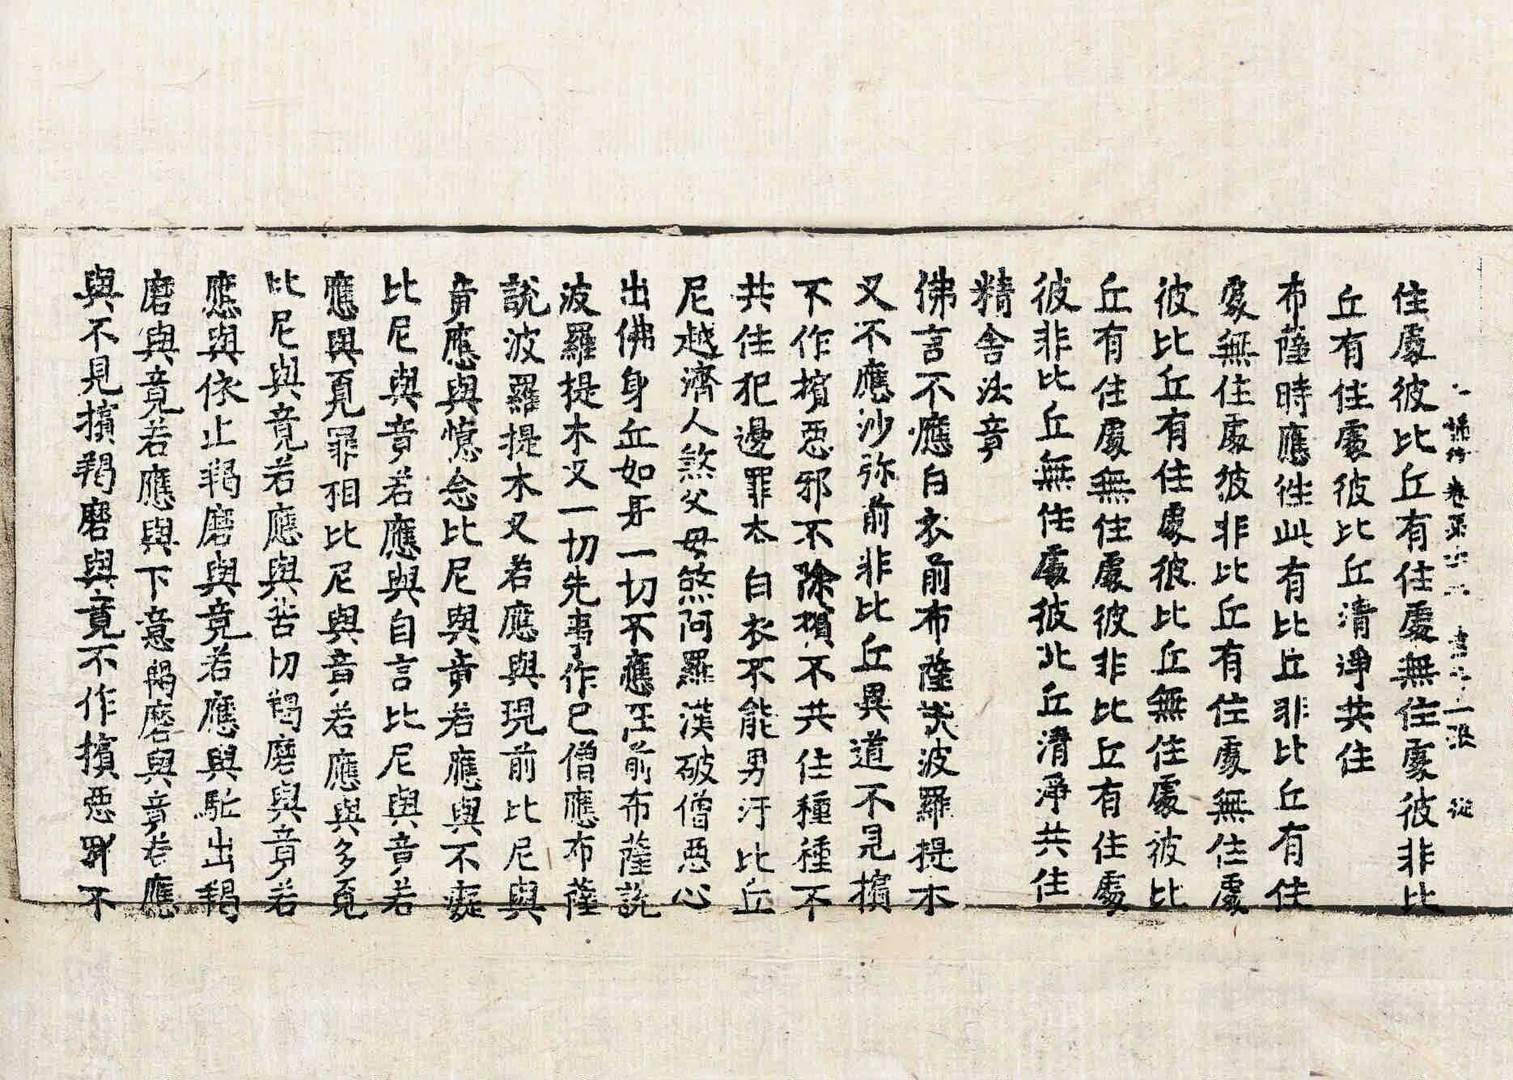 住處彼比丘有住處無住處彼非比
丘有住處彼比丘清淨共住
布薩時應往此有比丘非比丘有住
處無住處彼非比丘有住處無住處
彼比丘有住處彼比丘無住處彼比
丘有住處無住處彼非比丘有住處
彼非比丘無住處彼比丘清淨共住
精舍法竟
佛言不應白衣前布薩說波羅提木
叉不應沙弥前非比丘異道不見擯
不作擯惡邪不除擯不共住種種不
共住犯邊罪本白衣不能男汙比丘
尼越濟人煞父母煞阿羅漢破僧惡心
出佛身血如是一切不應在前布薩說
波羅提木叉一切先事作已僧應布薩
說波羅提木叉若應與現前比尼與
竟應與憶念比尼與竟若應與不癡
比尼與竟若應與自言比尼與竟若
應與覓罪相比尼與竟若應與多覓
比尼與竟若應與苦切羯磨與竟若
應與依止羯磨與竟若應與駈出羯
磨與竟若應與下意羯磨與竟若應
與不見擯羯磨與竟不作擯惡邪不